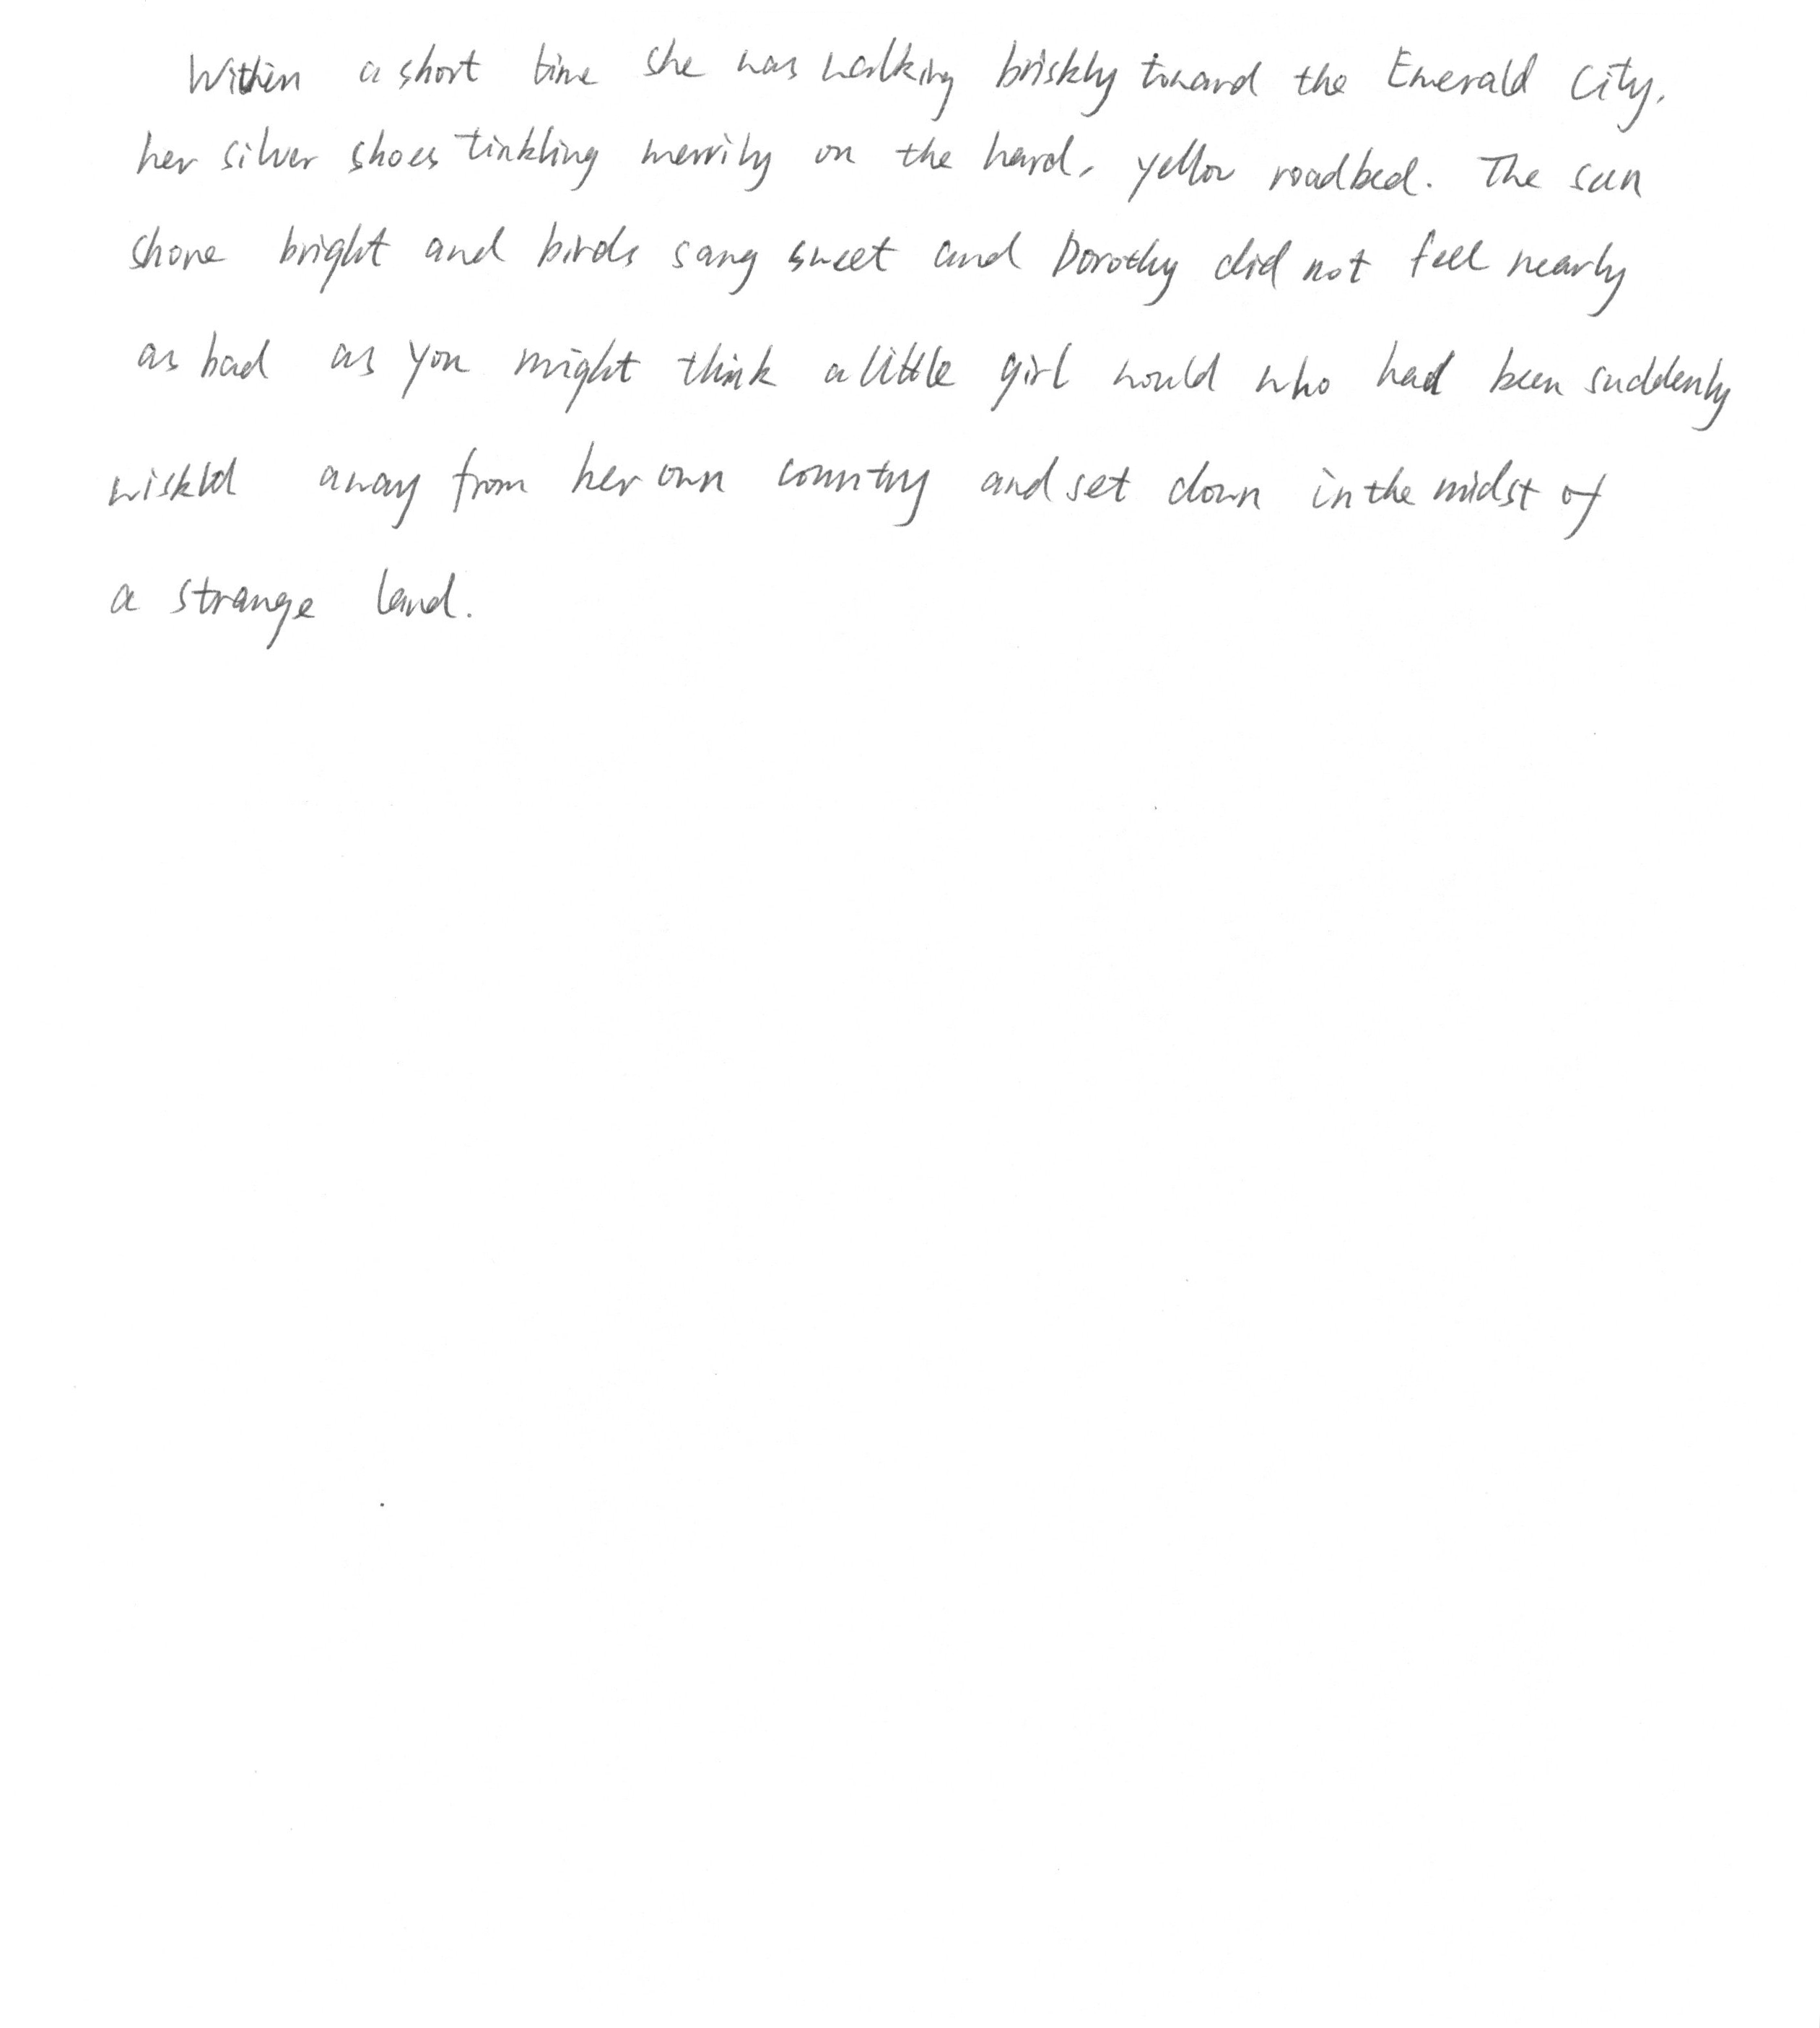 Within a short time she was walking briskly toward the Emerald City,
her silver shoes tinkling merrily on the hard, yellow roadbed. The sun
shone bright and birds sang sweet and Dorothy did not feel nearly
as bad as you might think a little girl would who had been suddenly
wisked away from her own country and set down in the midst of
a strange land.